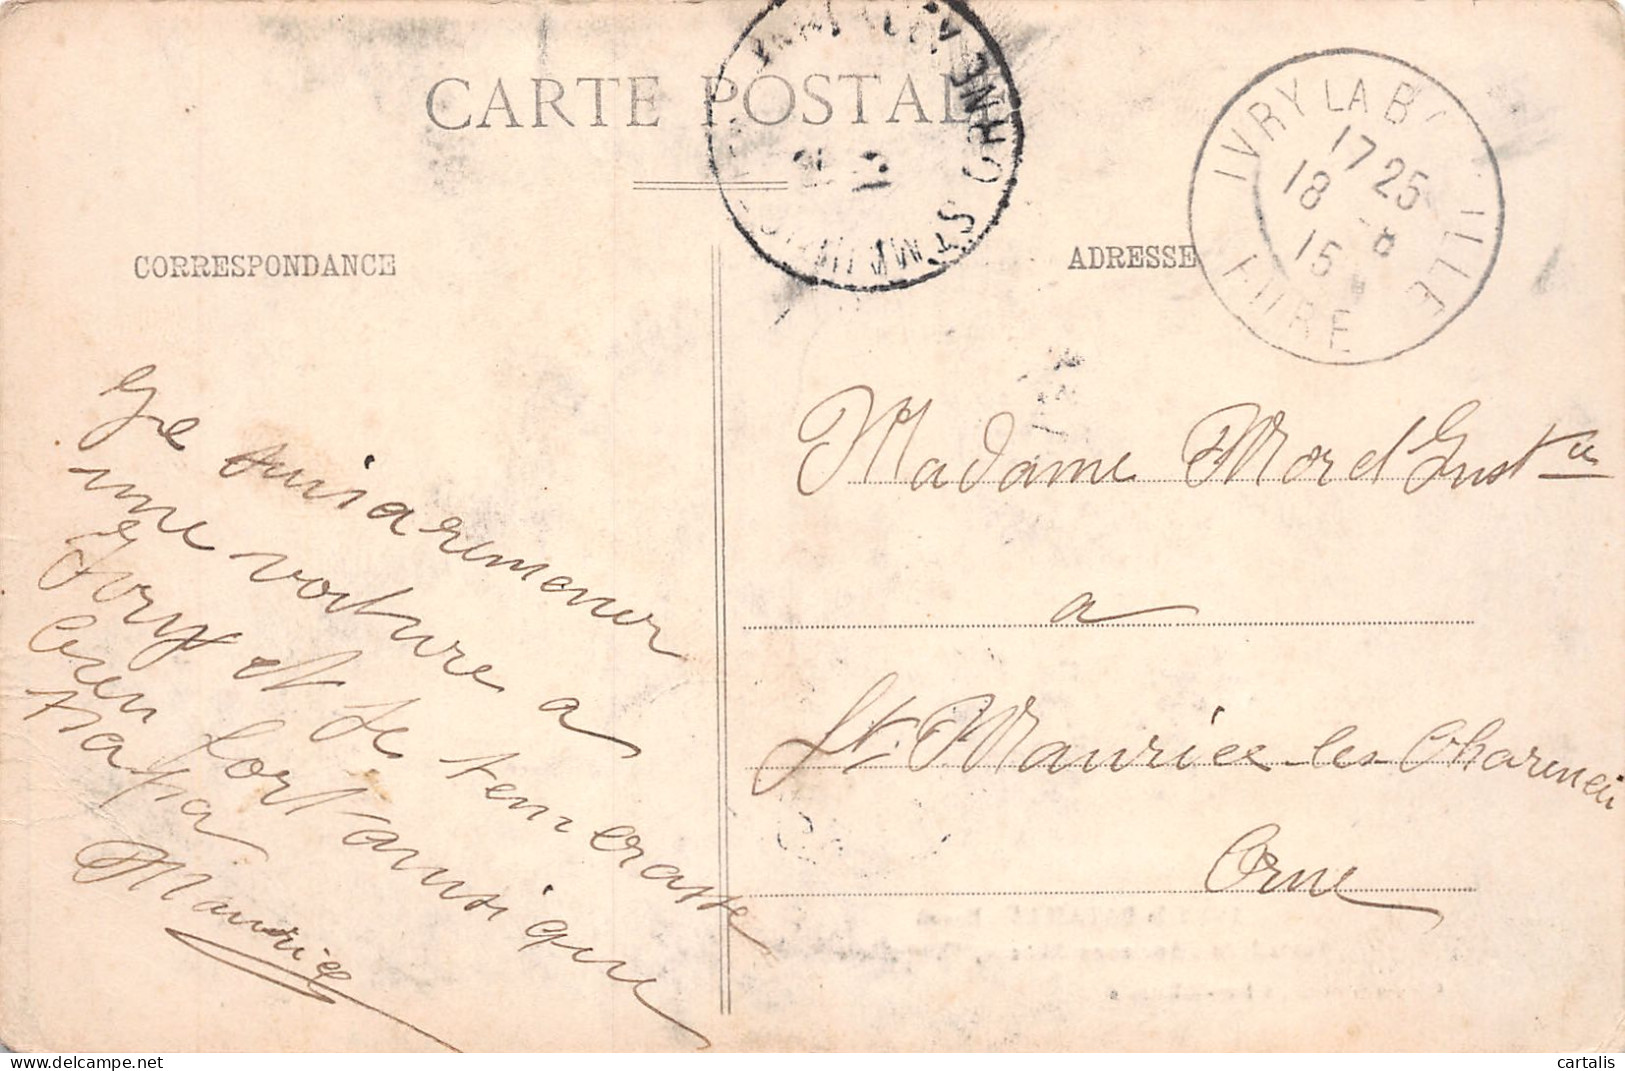 CARTE POSTALE
CORRESPONDANCE
ADRESSE
IVRY LA BATAILLE
17 25
18 - 8
15
EURE
Je suis a remener
une voiture a
Ivry et je tencrasse
bien fort ainsi que
papa
Maurice
Madame Morel Gust
a
St Maurice les Charencei
Orne
cartalis